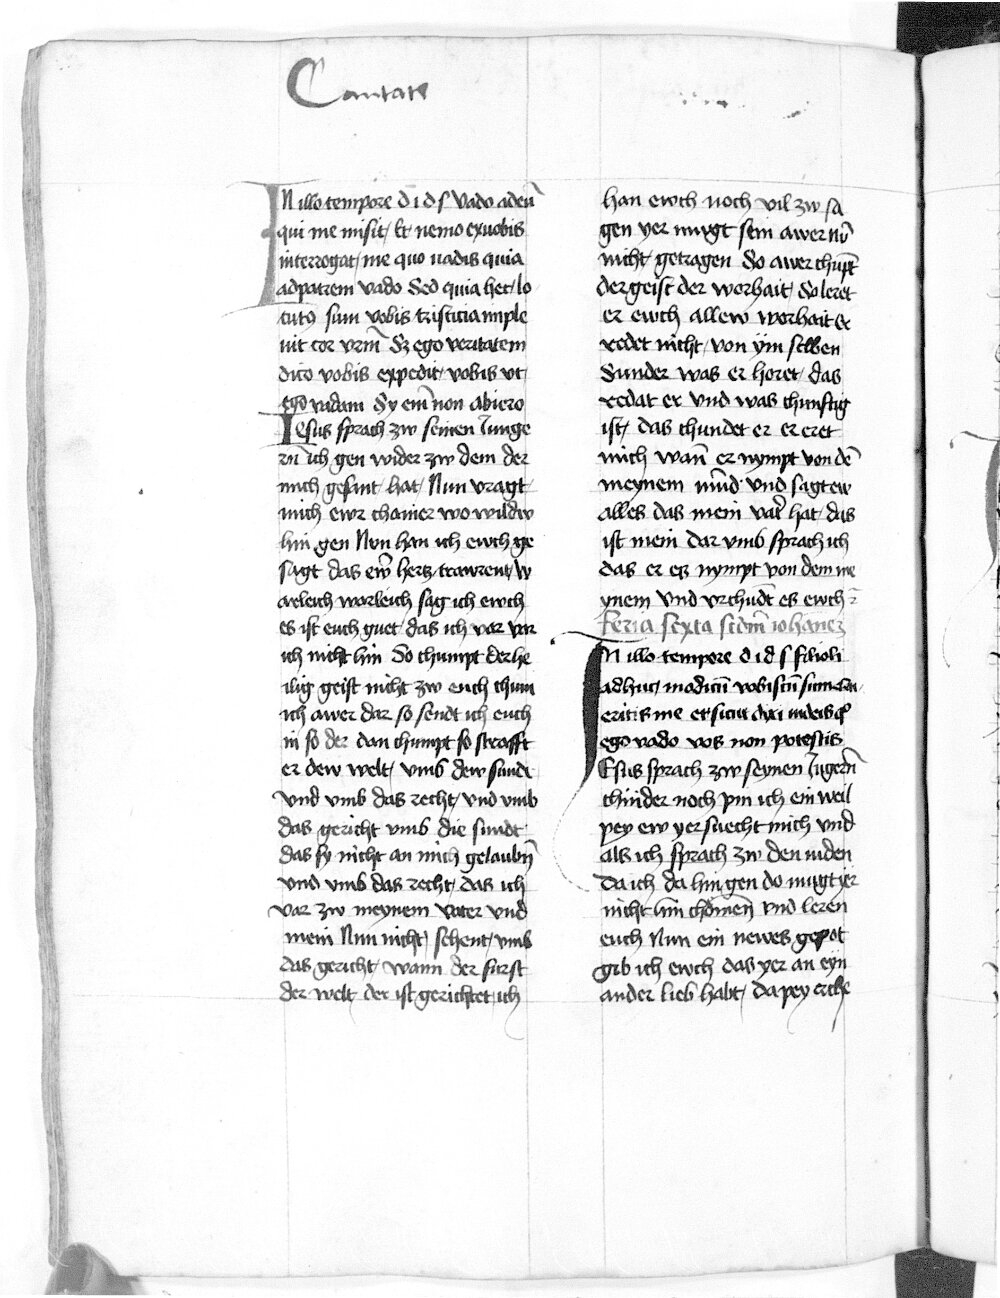 Cantate
IN illo tempore d i d s vado ad eū
qui me misit Et nemo ex uobis
interrogat me quo uadis quia
ad patrem vado Sed quia hec lo
cut9 sum vobis tristicia imple
uit cor vrm̄ Sz ego veritatem
dico vobis expedit vobis vt
ego vadam Sy em̄ non abiero
Iesus sprach zw seinen Iunge
rn̄ ich gen wider zw dem der
mich gesant hat Nun vragt
mich ewr chainer wo wildw
hin gen Nvn han ich ewch ge
sagt das ew̄ hertz trawrent w
arleich worleich sag ich ewch
es ist euch guet das ich var var
ich nicht hin So chumpt der he
ilig geist nicht zw euch chum
ich awer dar so sendt ich euch
in so der dan chumpt so strafft
er dew welt vmb dew sundt
vnd vmb das recht vnd vmb
das gericht vmb die sundt
das sy nicht an mich gelaubn̄
vnd vmb das recht das ich
var zw meynem vater vnd
mein Nun nicht sehent vmb
das gericht wann der furst
der welt der ist gerichtet ich
han ewch noch vil zw sa
gen yer mugt sein awer nū
nicht getragen So awer chupt̄
der geist der worhait So leret
er ewch allew worhait er
redet nicht von ÿm selben
Sunder was er horet das
redat er vnd was chunftig
ist das chundet er er eret
mich wan̄ er nympt von dē
meynem vnd vnd sagt ew
alles das mein vat̄ hat das
ist mein dar vmb sprach ich
das er ez nympt von dem me
ynem vnd vrchūdt es ewch
Feria sexta scdm̄ iohanez
IN illo tempore d i d s filioli
adhuc modicū vobiscū sum
eritis me et sicut dixi iudeis qͦ
ego vado vos non potestis
Iesus sprach zw seynen Iugern̄
chinder noch pin ich ein weil
pey ew yer suecht mich vnd
als ich sprach zw den iuden
da ich da hin gen do mugt yer
nicht hin chömen̄ vnd leren
euch Nun ein newes gepot
gib ich ewch das yer an eyn
ander lieb habt da pey erche